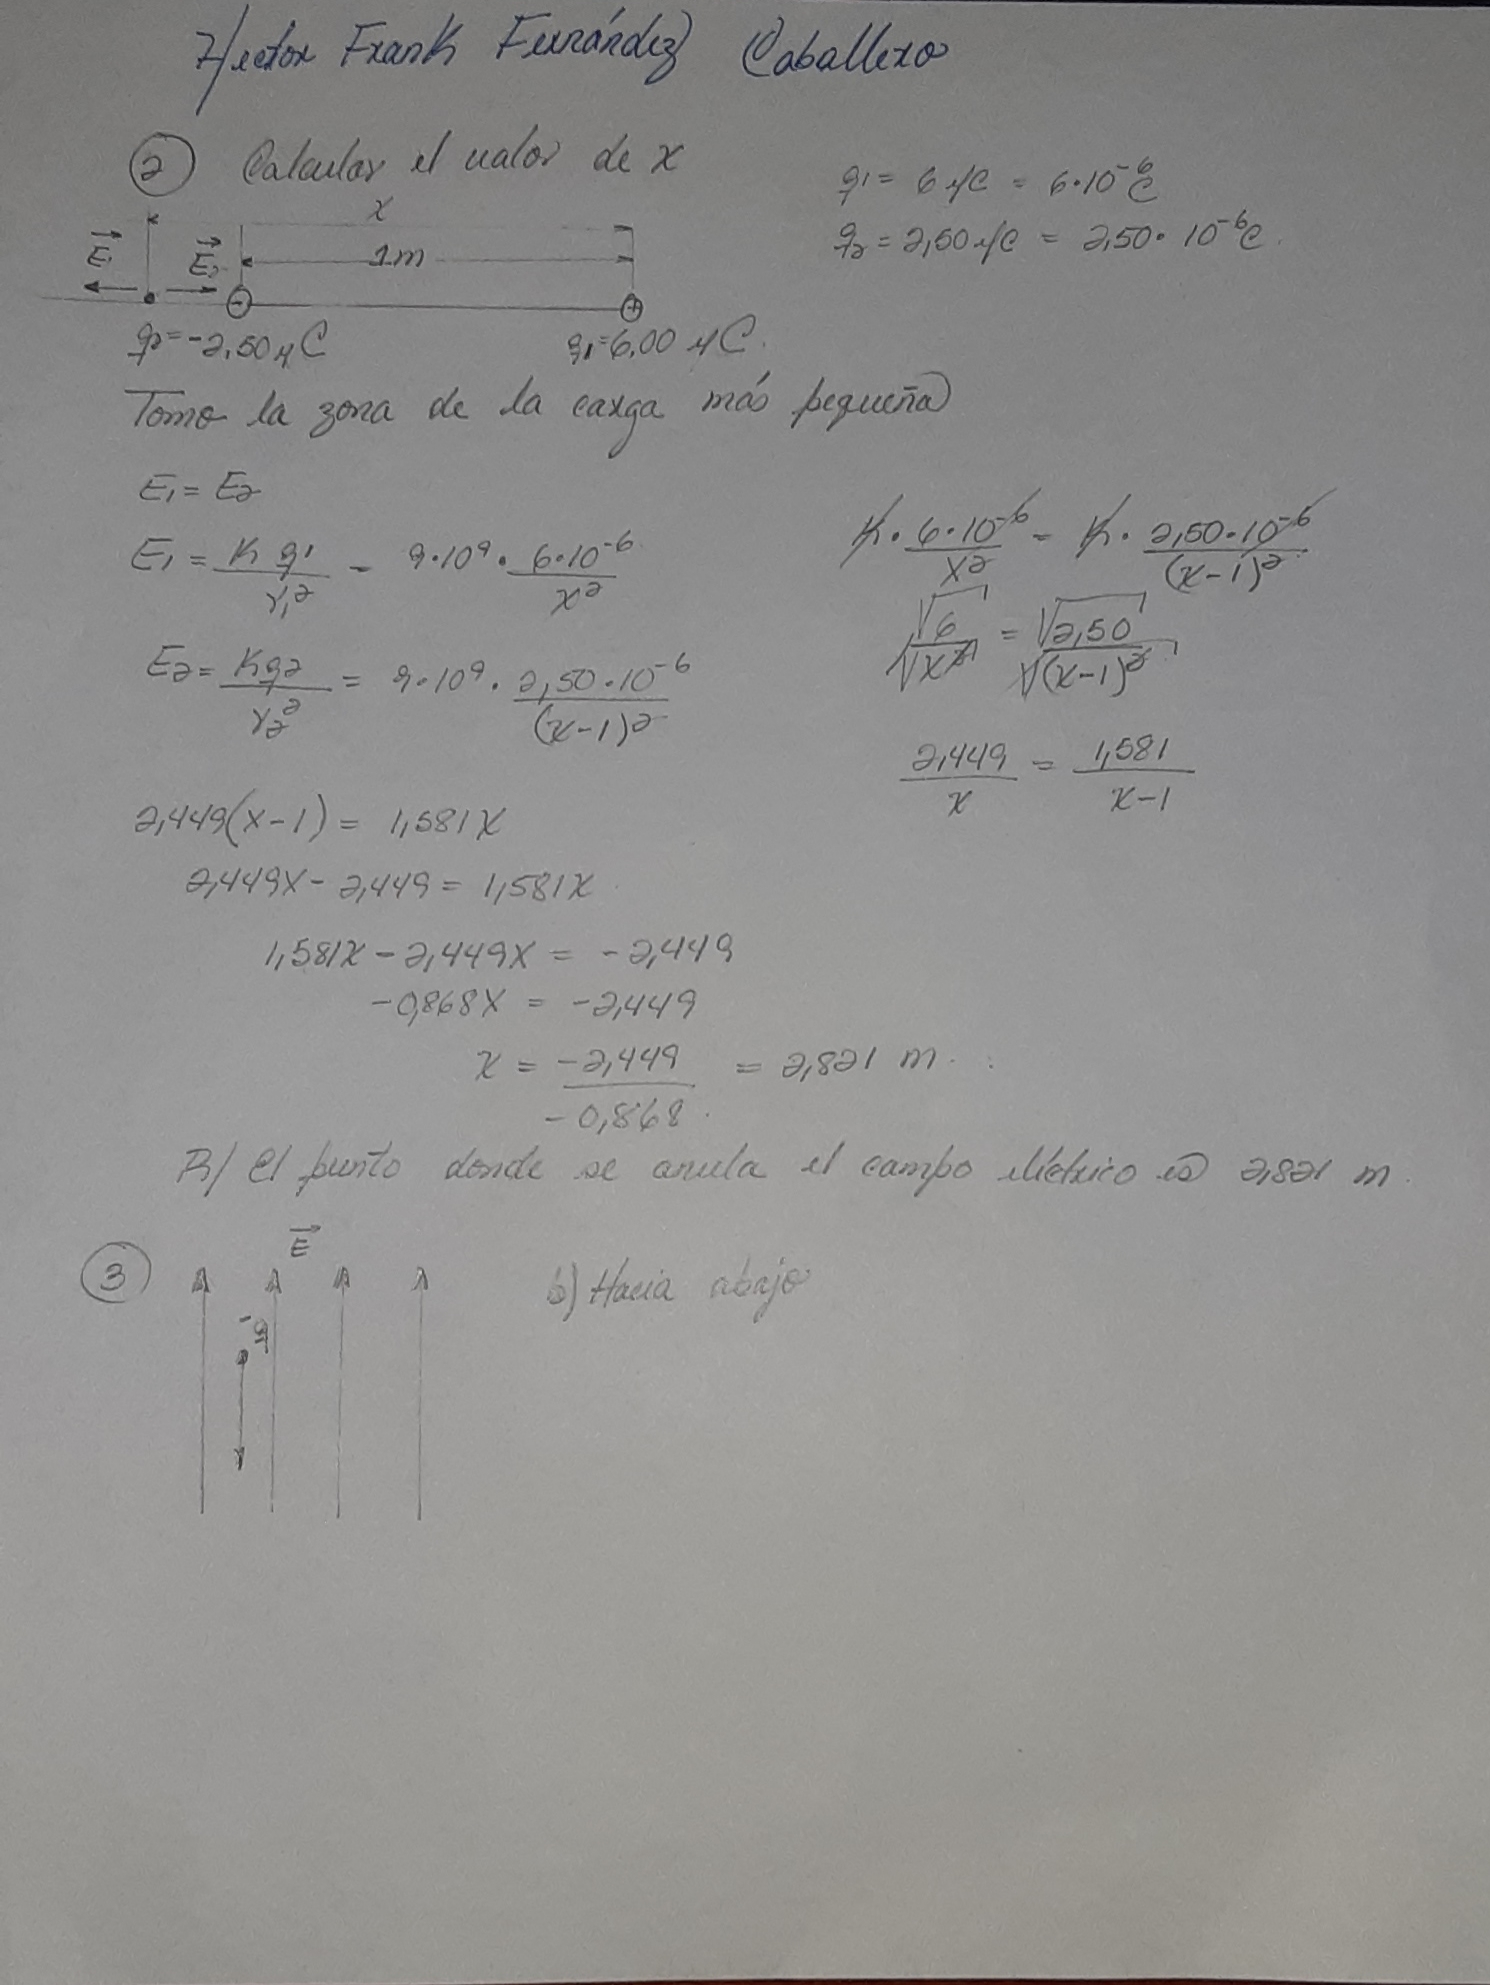 Hector Frank Fernández Caballero
2 Calcular el valor de x
q1 = 6 μC = 6·10⁻⁶C
q2 = 2,50 μC = 2,50·10⁻⁶C.
x
1m
E1 E2
- +
q2=-2,50 μC q1=6,00 μC.
Tomo la zona de la carga más pequeña
E1 = E2
E1 = K q1 / r1² = 9·10⁹ · 6·10⁻⁶ / x²
E2 = K q2 / r2² = 9·10⁹ · 2,50·10⁻⁶ / (x-1)²
K · 6·10⁻⁶ / x² = K · 2,50·10⁻⁶ / (x-1)²
√6 / √x² = √2,50 / √(x-1)²
2,449 / x = 1,581 / x-1
2,449(x-1) = 1,581x
2,449x - 2,449 = 1,581x
1,581x - 2,449x = -2,449
-0,868x = -2,449
x = -2,449 / -0,868 = 2,821 m.
R/ El punto donde se anula el campo eléctrico es 2,821 m.
3 E b) Hacia abajo